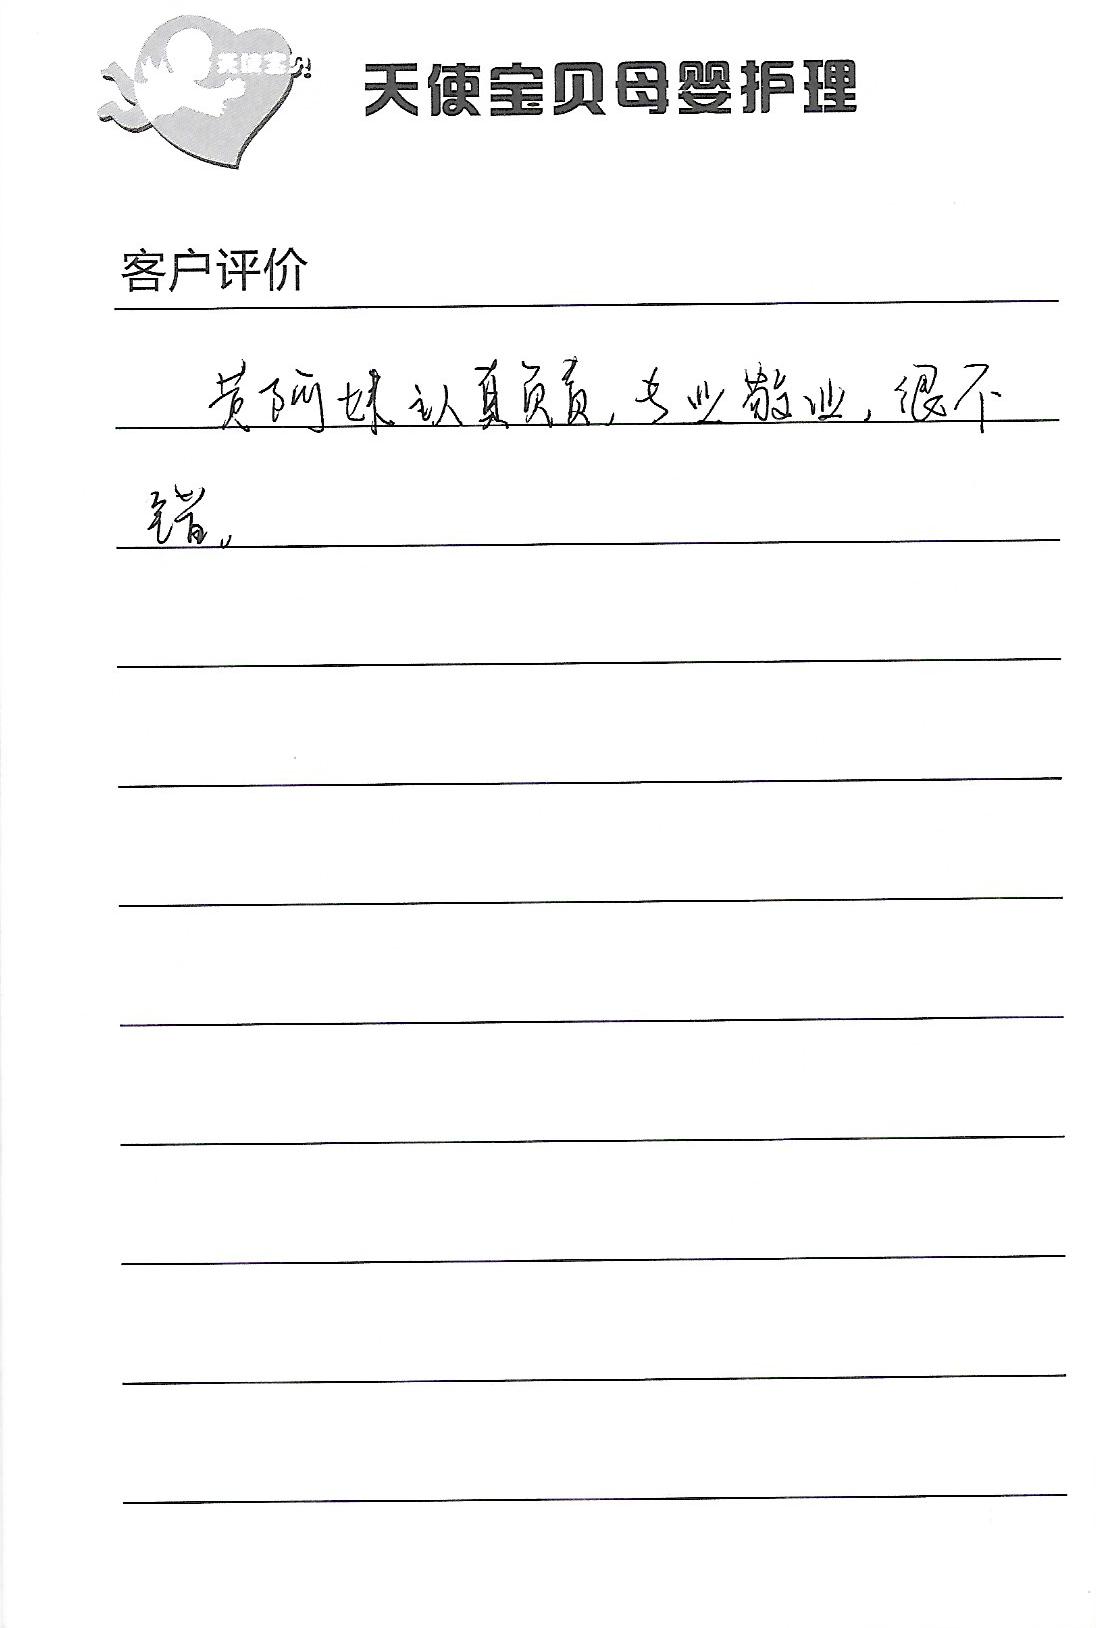 天使宝贝
天使宝贝母婴护理
客户评价
黄阿妹认真负责,专业敬业,很不
错。